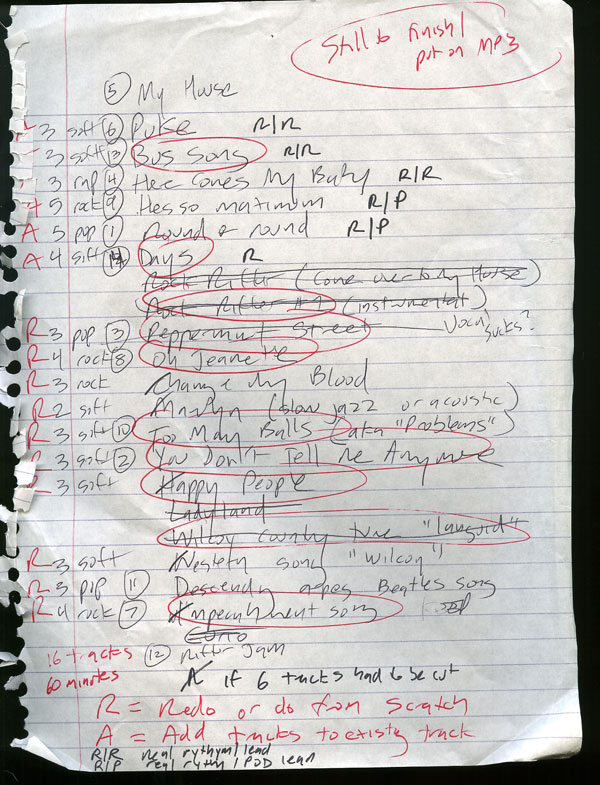 Still to finish/
put on MP3
5 My House
A 3 soft 6 Puke R/R
3 soft 13 Bus Song R/R
3 pop 4 Here Comes My Baby R/R
A 5 rock 9 Hes so maximum R/P
A 5 pop 1 Round & round R/P
A 4 soft 14 Days R
Rock Riffer (Come over to My House)
Rock Riffer #1 (instrumental)
R 3 pop 3 Peppermint Street Vocal sucks?
R 4 rock 8 Oh Jeanette
R 3 rock Change My Blood
R 2 soft (slow jazz or acoustic)
R 3 soft 10 Too Many Balls (aka "Problems")
R 3 soft 2 You Don't Tell Me Anymore
R 3 soft Happy People
Ladyland
Wilcoy country tune "languid"
R 3 soft Western song "wilcoy"
R 3 pop 11 Descendy apes Beatles song
R 4 rock 7 Impeachment song
16 tracks 12 Riffer Jam
60 minutes X if 6 tracks had to be cut
R = Redo or do from Scratch
A = Add tracks to existy track
R/R real rythym/lead
R/P real rythm / POD lead